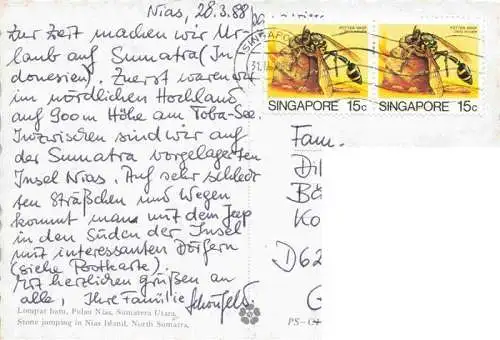 Nias, 28.3.88
Zur Zeit machen wir Ur-
laub auf Sumatra (In-
donesien). Zuerst waren wir
im nördlichen Hochland
auf 900 m Höhe am Toba-See.
Inzwischen sind wir auf
der Sumatra vorgelagerten
Insel Nias. Auf sehr schlech-
ten Sträßchen und Wegen
kommt man mit dem Jeep
in den Süden der Insel
mit interessanten Dörfern
(siehe Postkarte).
Mit herzlichen Grüßen an
alle, Ihre Familie Schönfeld.
Lompat batu, Pulau Nias, Sumatera Utara.
Stone jumping in Nias Island, North Sumatra.
SINGAPORE
POTTER WASP
SINGAPORE 15c
POTTER WASP
SINGAPORE 15c
Fam.
Di
Bä
Ko
D62
G
PS-